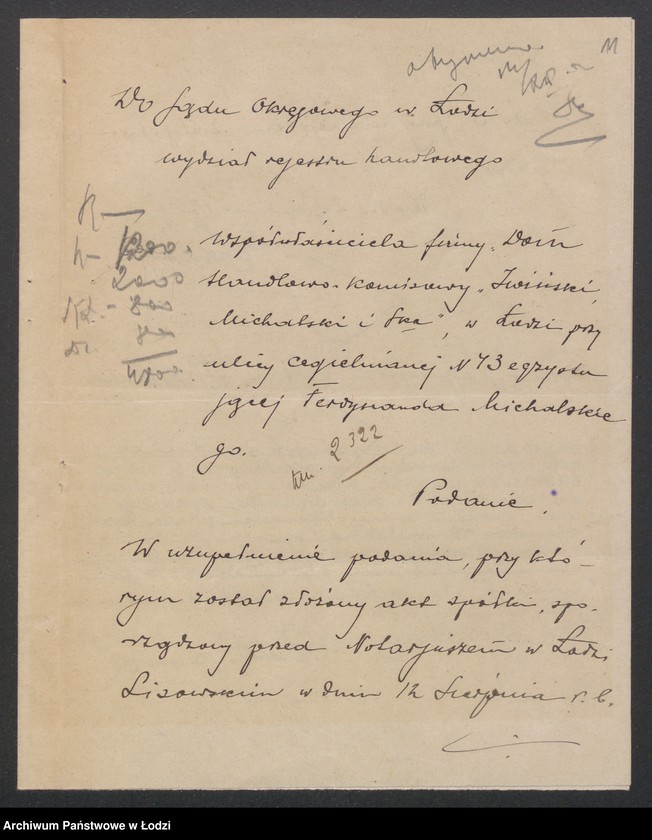 11
Do Sądu Okręgowego w Łodzi
wydział rejestru handlowego
1200.
2000
800
4800
Współwłaściciela firmy „Dom
Handlowo-Komisowy „Iwiński,
Michalski i Ska”, w Łodzi przy
ulicy Cegielnianej N 73 egzystu
jącej Ferdynanda Michalskie
go.
2322
Podanie.
W uzupełnienie podania, przy któ-
rym został złożony akt spółki, spo-
rządzony przed Notarjuszem w Łodzi
Lisowskim w dniu 12 Sierpnia r. b.
Archiwum Państwowe w Łodzi